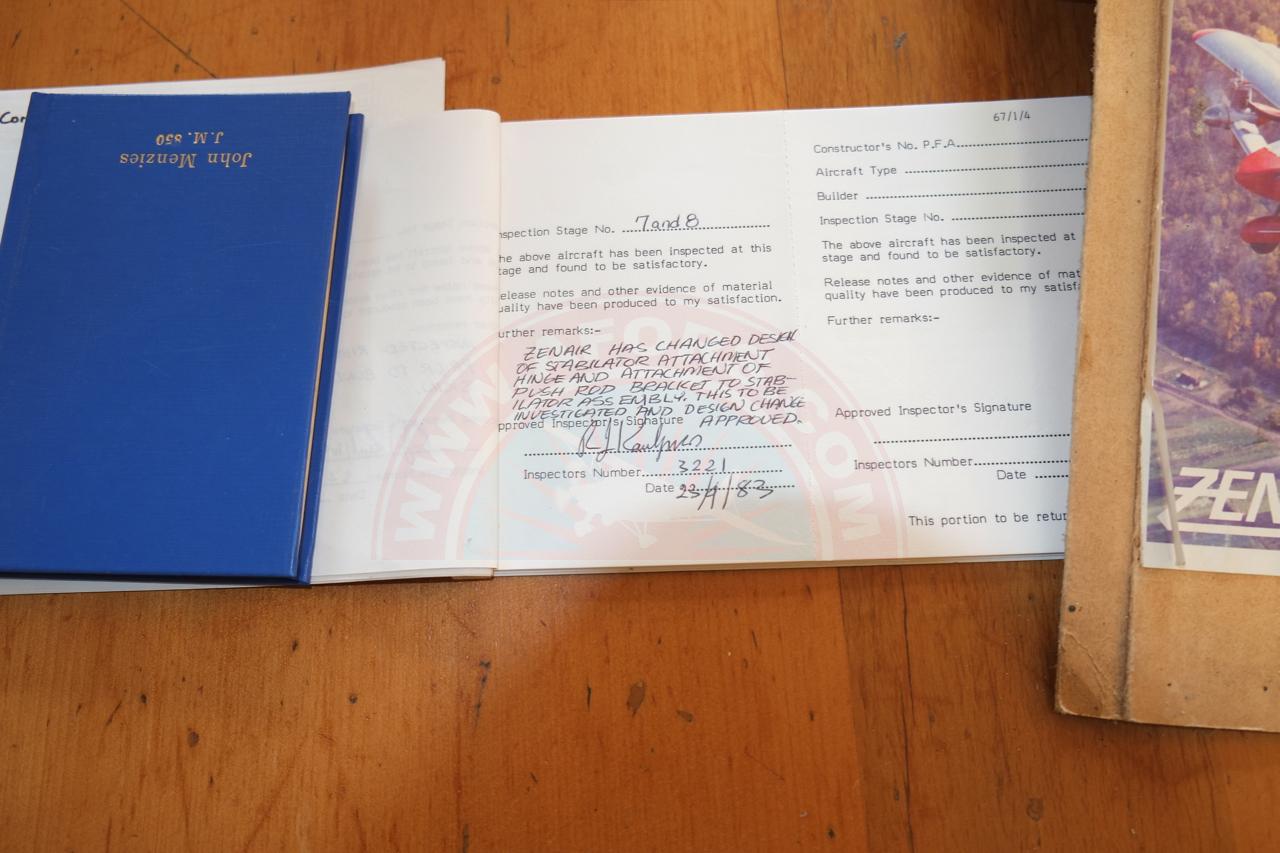 Con
John Menzies
J.M. 850
nspection Stage No. 7 and 8
he above aircraft has been inspected at this
tage and found to be satisfactory.
elease notes and other evidence of material
uality have been produced to my satisfaction.
urther remarks:-
ZENAIR HAS CHANGED DESIGN
OF STABILATOR ATTACHMENT
HINGE AND ATTACHMENT OF
PUSH ROD BRACKET TO STAB-
ILATOR ASSEMBLY. THIS TO BE
INVESTIGATED AND DESIGN CHANGE
APPROVED.
pproved Inspector's Signature
Inspectors Number 3221
Date
67/1/4
Constructor's No. P.F.A.
Aircraft Type
Builder
Inspection Stage No.
The above aircraft has been inspected at
stage and found to be satisfactory.
Release notes and other evidence of mat
quality have been produced to my satisf
Further remarks:-
Approved Inspector's Signature
Inspectors Number
Date
This portion to be retur
ZEN